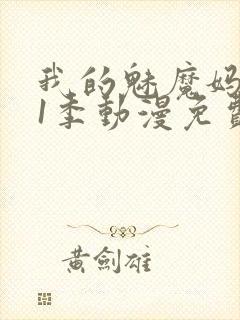 我的魅魔妈
1季動漫免費
黃劍雄